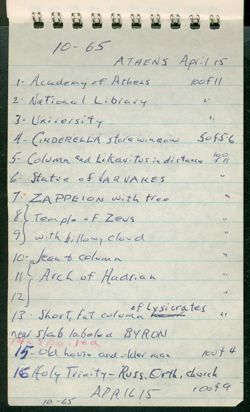 10-65
ATHENS April 15
1- Academy of Athens 10 of 11
2- National Library "
3- University "
4- CINDERELLA store window 5 of 56
5- Column and Likavitos in distance 10 of 11
6- Statue of VARVAKES "
7- ZAPPEION with tree "
8 Temple of Zeus "
9 with billowy cloud "
10- Jean to column "
11 Arch of Hadrian "
12 "
13- Short, fat column of Lysicrates "
near slab labeled BYRON
15- old house and older man 10 of 4
16 Holy Trinity- Russ. Orth. church
APRIL 15 10 of 9
10-65